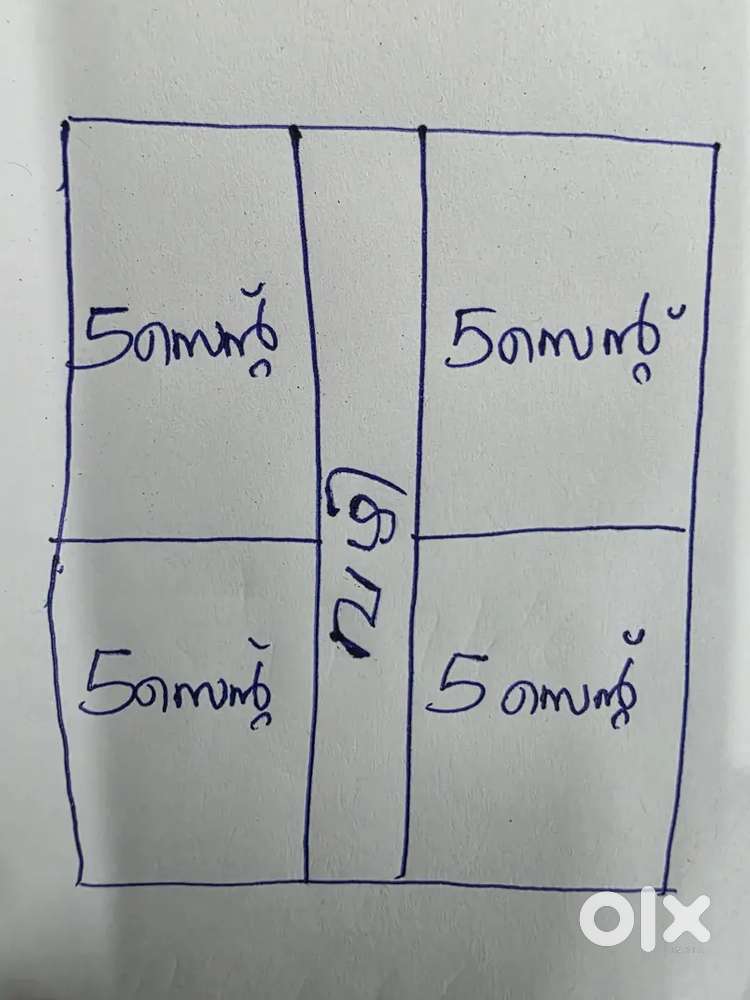 5 സെന്റ്
5 സെന്റ്
വഴി
5 സെന്റ്
5 സെന്റ്
olx